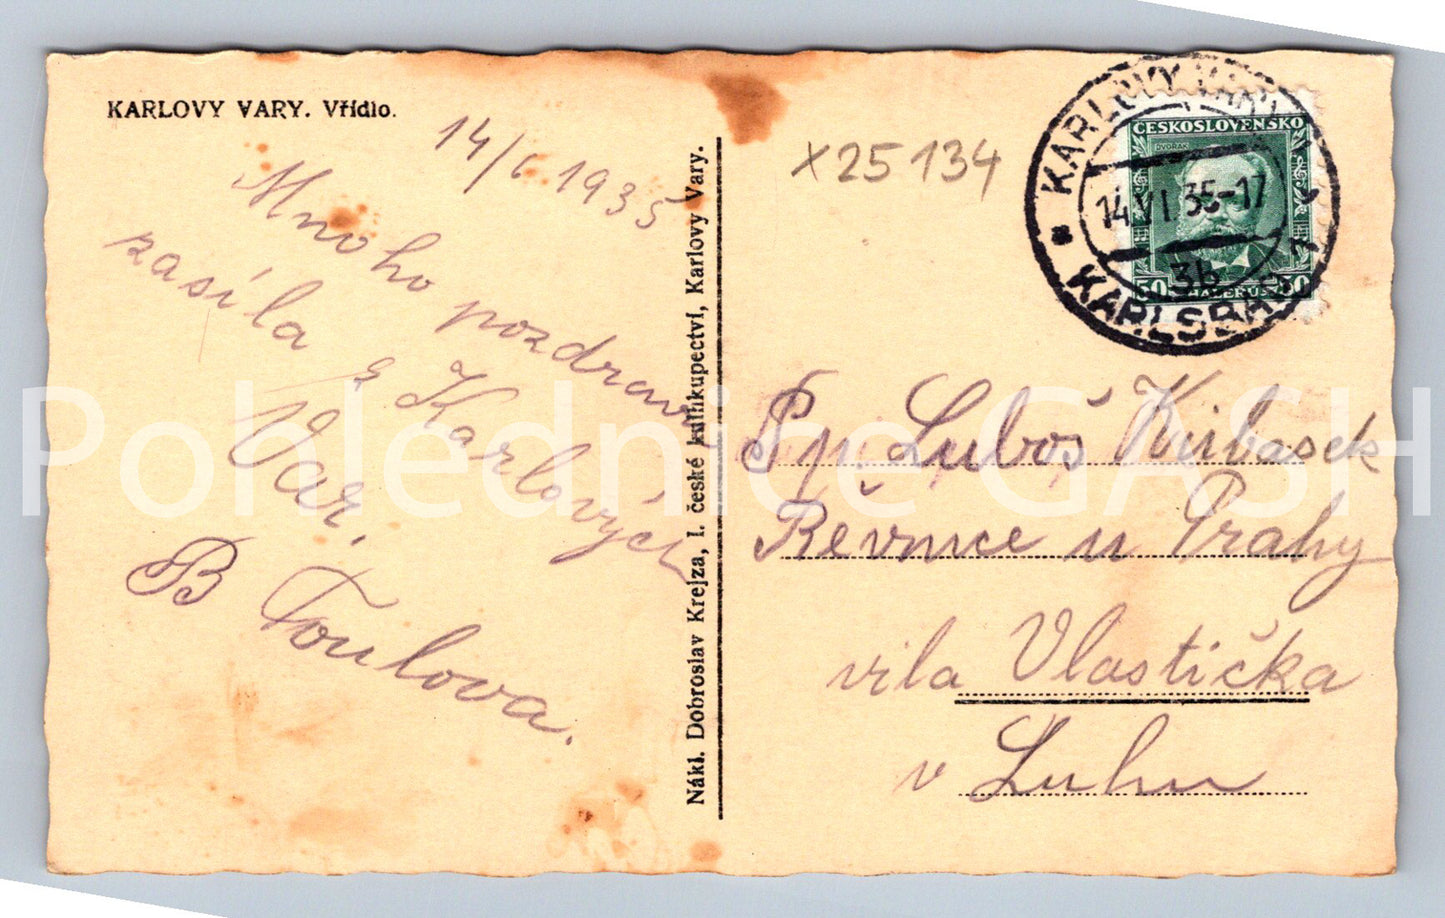 KARLOVY VARY. Vřídlo.
14/6 1935
Mnoho pozdravů
zasíla z Karlových
Var.
B Toulova.
Nákl. Dobroslav Krejza, I. české knihkupectví, Karlovy Vary.
x25134
KARLOVY VARY 1
14.VI.35-17
3b
KARLSBAD 1
ČESKOSLOVENSKO
DVOŘÁK
50 HALÉŘŮ 50
Pp. Luboš Kirbasek
Řevnice u Prahy
vila Vlastička
v Luhu
Pohlednice GASH